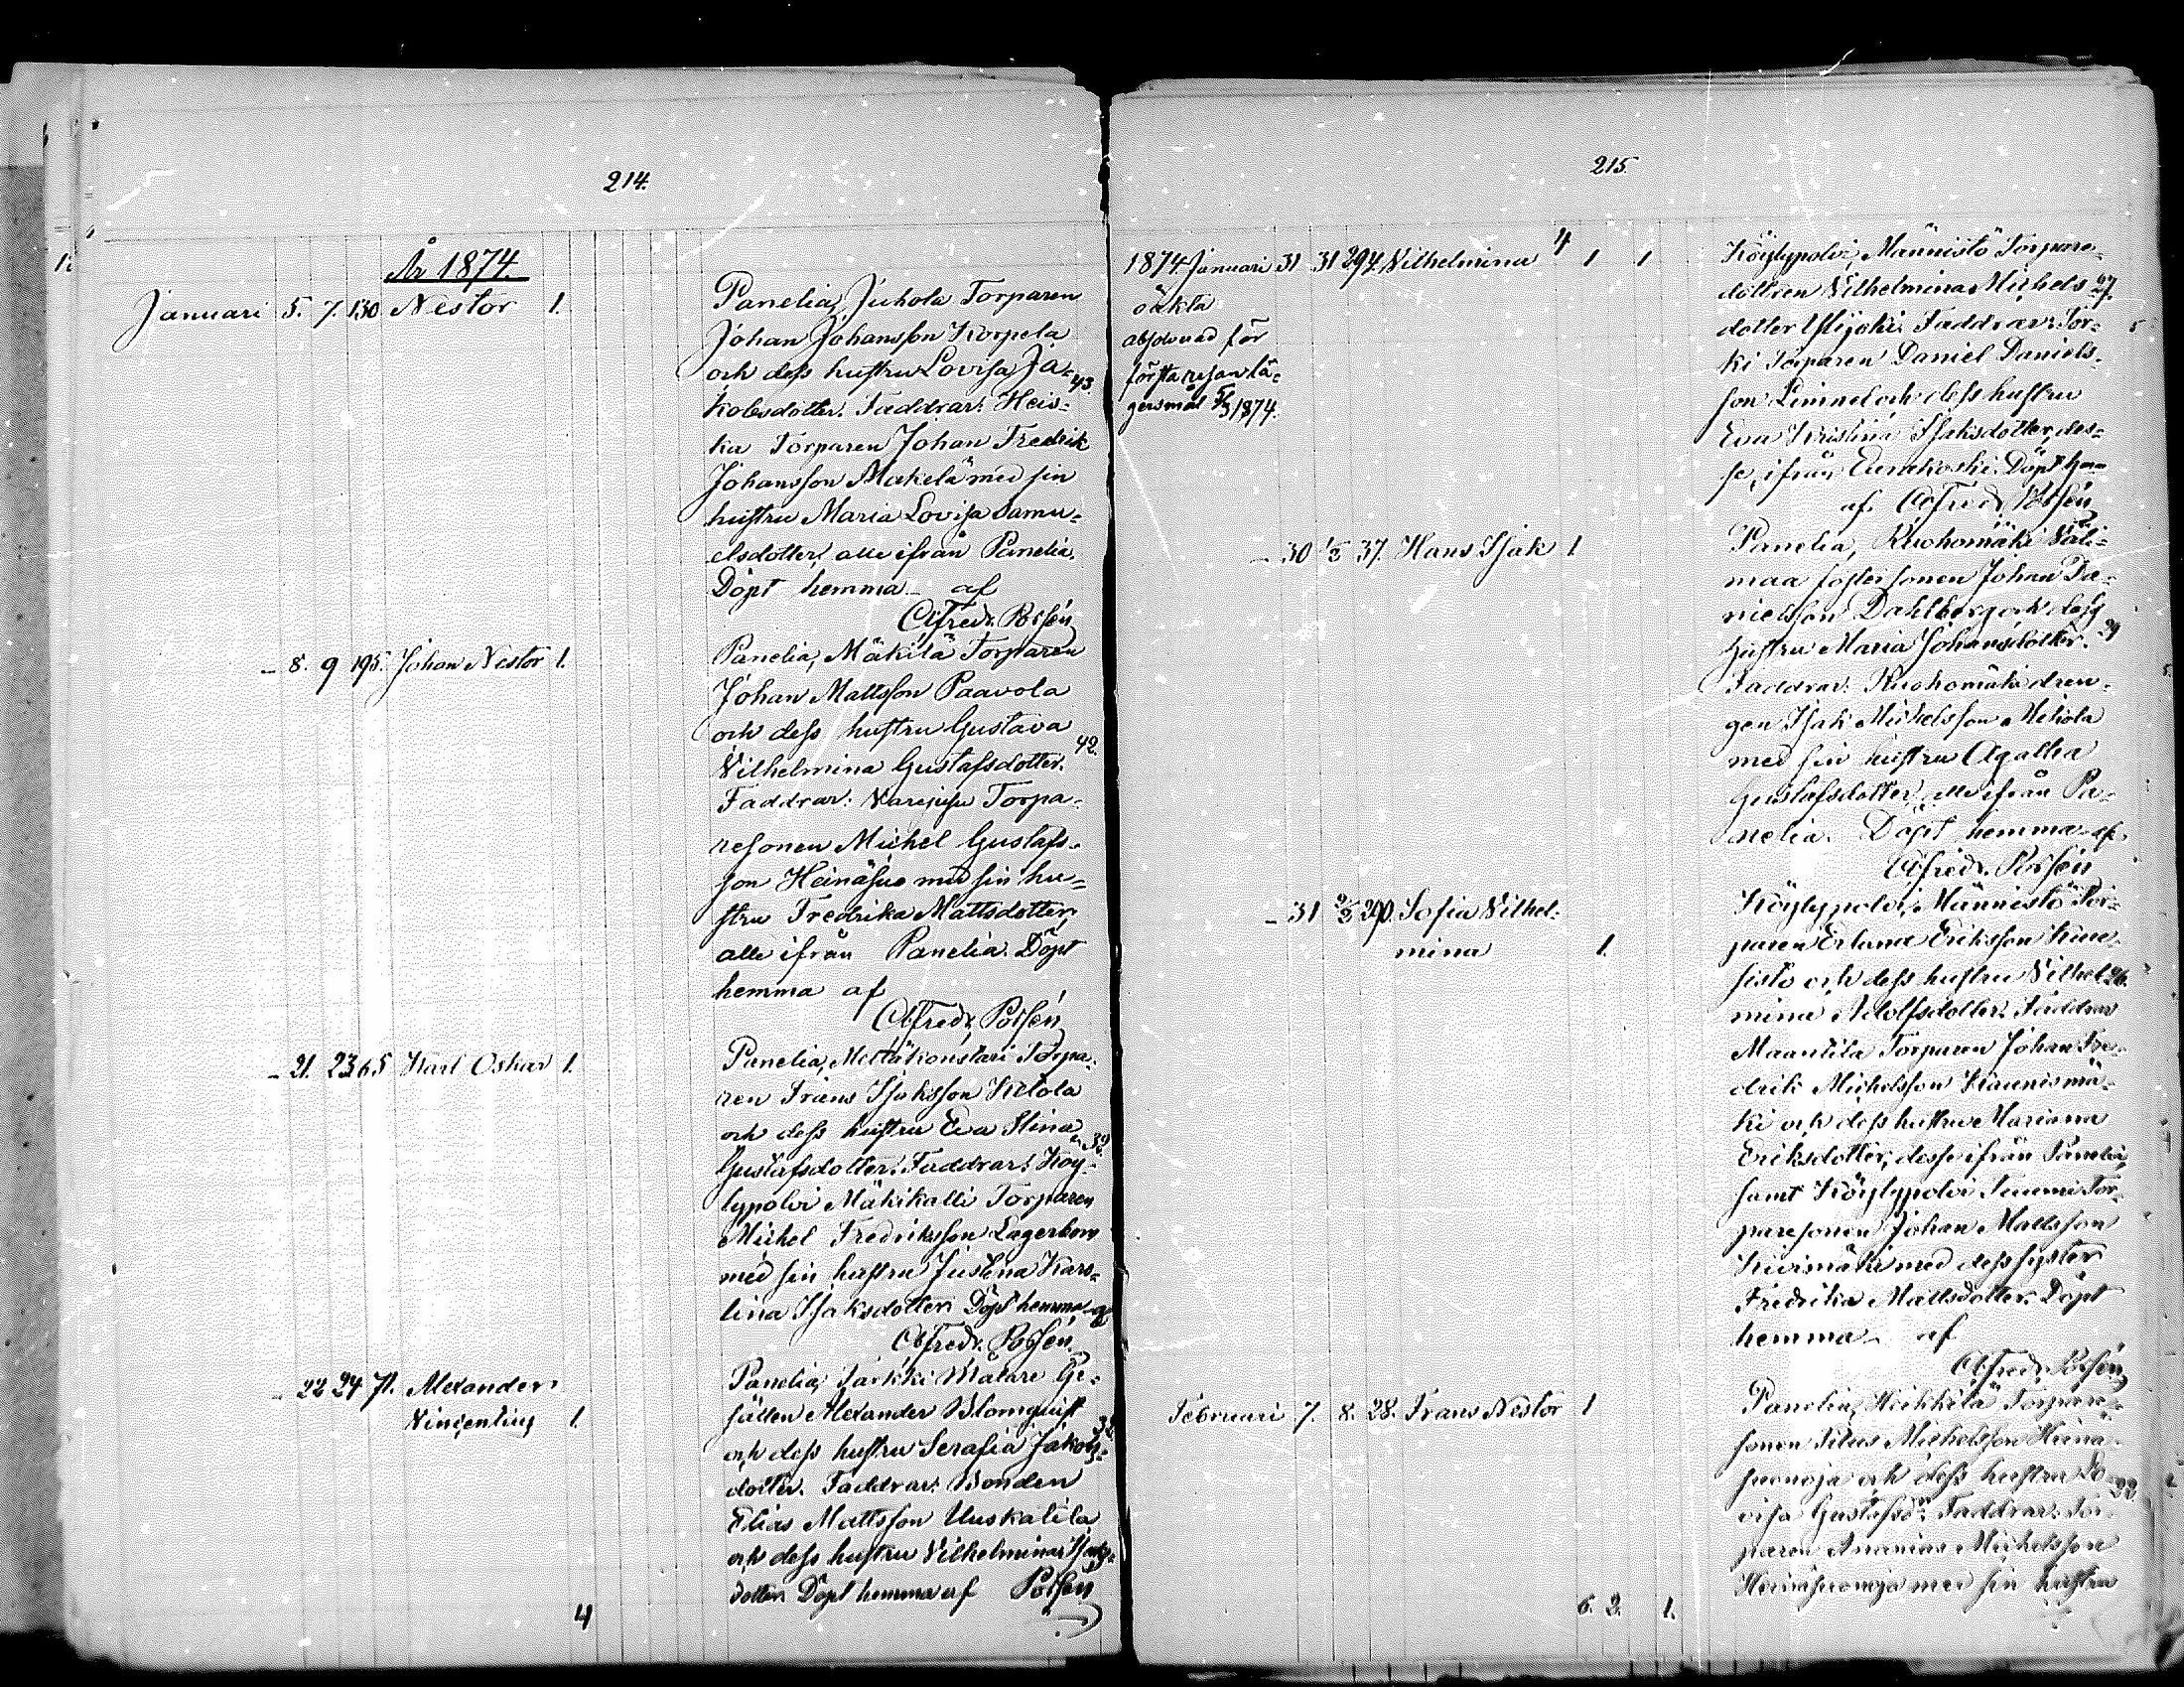 214.
År 1874.
Januari 5. 7. 130 Nestor 1.
Panelia, Juhola Torparen
Johan Johansson Korpela
och dess hustru Lovisa Ja-
43.
kobsdotter. Faddrar: Heis-
ka Torparen Johan Fredrik
Johansson Makelä med sin
hustru Maria Lovisa Samu-
elsdotter, alle ifrån Panelia.
Döpt hemma af
Alfredr. Porsén
– 8. 9 195. Johan Nestor 1.
Panelia, Mäkilä Torparen
Johan Mattsson Paavola
och dess hustru Gustava
42.
Vilhelmina Gustafsdotter.
Faddrar: Torpa-
resonen Michel Gustafs-
son Heinäsuo med sin hu-
stru Fredrika Mattsdotter,
alle ifrån Panelia. Döpt
hemma af
Alfredr. Porsén
– 21. 23 65 Karl Oskar 1.
Panelia, Torpa-
ren Frans Isaksson Ketola
och dess hustru Eva Stina
32.
Gustafsdotter. Faddrar: Köy-
lypolvi Mäkikalli Torparen
Michel Fredriksson Lagerbom
med sin hustru Justina Karo-
lina Isaksdotter. Döpt hemma af
Alfredr. Porsén.
– 22 24 71. Alexander
Vincentius 1.
Panelia, Jaakki Målare Ge-
sällen Alexander Blomquist
38.
och dess hustru Serafia Jakobs-
dotter. Faddrar: Bonden
Elias Mattsson Uuskatila
och dess hustru Vilhelmina Isaks-
dotter. Döpt hemma af Porsén
4
215.
4
1874. Januari 31 31 294 Vilhelmina 1 1
oäkta
absolverad för
första resan lä-
gersmål 1874.
Köylypolvi, Männistö Torpare-
dottren Vilhelmina Michels-
27.
dotter Ylijoki. Faddrar: Tor-
ki Torparen Daniel Daniels-
son Linnel och dess hustru
Eva Kristina Isaksdotter, des-
se, ifrån Eurakoski. Döpt hemma
af Alfredr. Porsén
– 30 1/2 37. Hans Isak 1.
Panelia, Ruohomäki Väli-
maa fostersonen Johan Da-
nielsson Dahlberg och dess
29
hustru Maria Johansdotter.
Faddrar: Ruohomäki dren-
gen Isak Michelsson Mekola
med sin hustru Agatha
Gustafsdotter, alle ifrån Pa-
nelia. Döpt hemma af
Alfredr. Porsén
– 31 2/2 290. Sofia Vilhel-
mina 1.
Köylypolvi, Männistö Tor-
paren Erland Eriksson Kuu-
sisto och dess hustru Vilhel-
26.
mina Adolfsdotter. Faddrar
Maantila Torparen Johan Fre-
drik Michelsson Kaunismä-
ki och dess hustru Marianna
Eriksdotter, desse ifrån Panelia,
samt Köylypolvi Tuumi Tor-
paresonen Johan Mattsson
Kuirmäki med dess syster
Fredrika Mattsdotter. Döpt
hemma af
Alfredr. Porsén
Februari 7. 8. 28. Frans Nestor 1
Panelia, Heikkilä Torpare-
sonen Titus Michelsson Heinä-
suonoja och dess hustru Lo-
22.
visa Gustafsdr. Faddrar: Tor-
paren Ananias Michelsson
Heinäsuonoja med sin hustru
6. 2. 1.